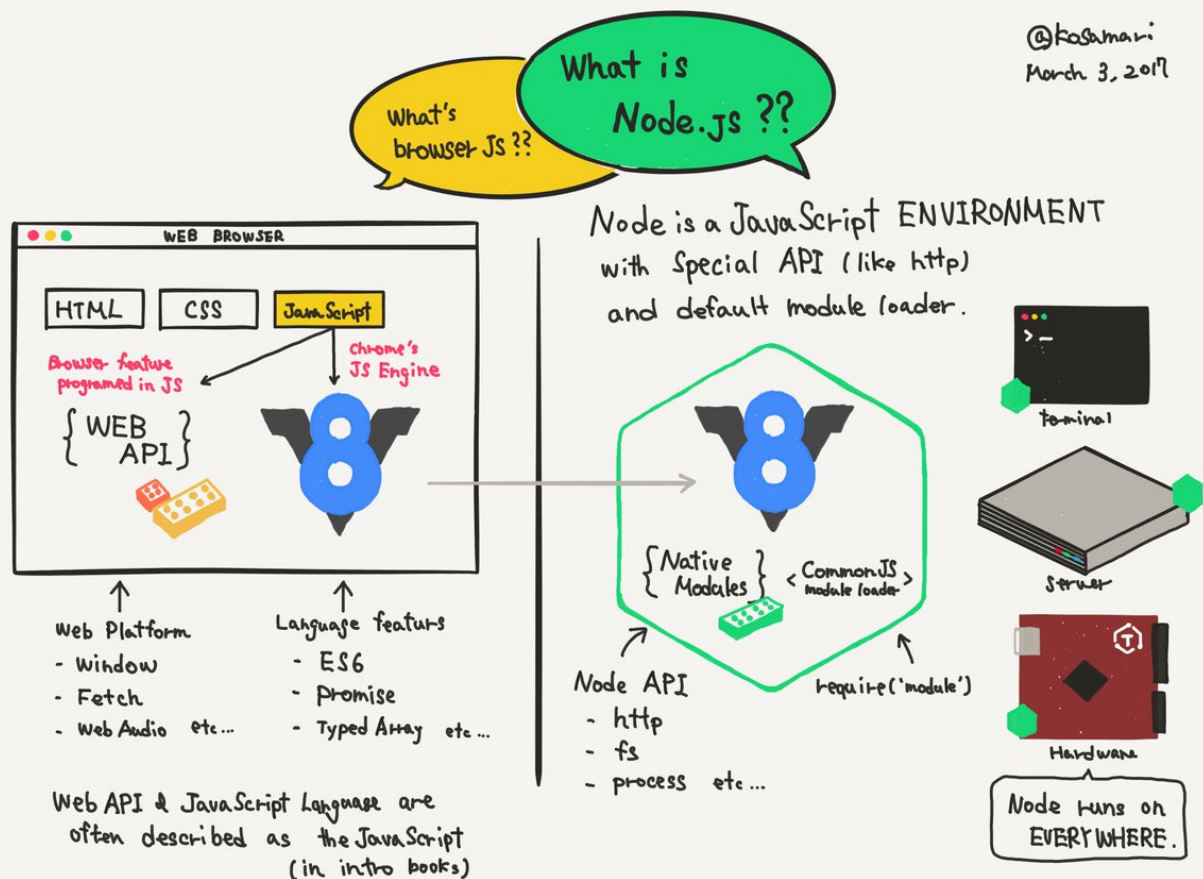 @kosamari
March 3, 2017
What's
browser JS ??
What is
Node.js ??
WEB BROWSER
HTML
CSS
JavaScript
Browser feature
programed in JS
Chrome's
JS Engine
{ WEB
API }
8
Web Platform
- Window
- Fetch
- Web Audio etc...
Language featurs
- ES6
- Promise
- Typed Array etc...
Web API & JavaScript Language are
often described as the JavaScript
(in intro books)
Node is a JavaScript ENVIRONMENT
with special API (like http)
and default module loader.
8
{ Native
Modules }
< CommonJS
module loader >
Node API
- http
- fs
- process etc...
require('module')
>_
terminal
server
T
Hardware
Node runs on
EVERYWHERE.